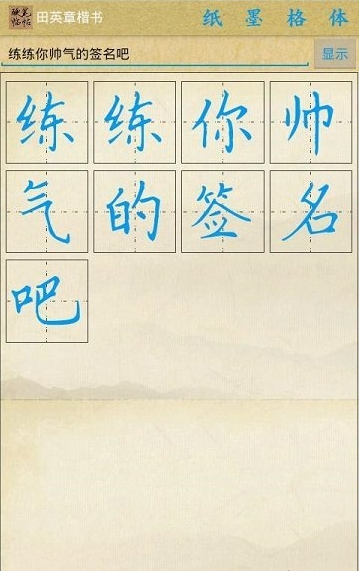 硬笔临帖 田英章楷书 纸 墨 格 体
练练你帅气的签名吧 显示
练练你帅
气的签名
吧